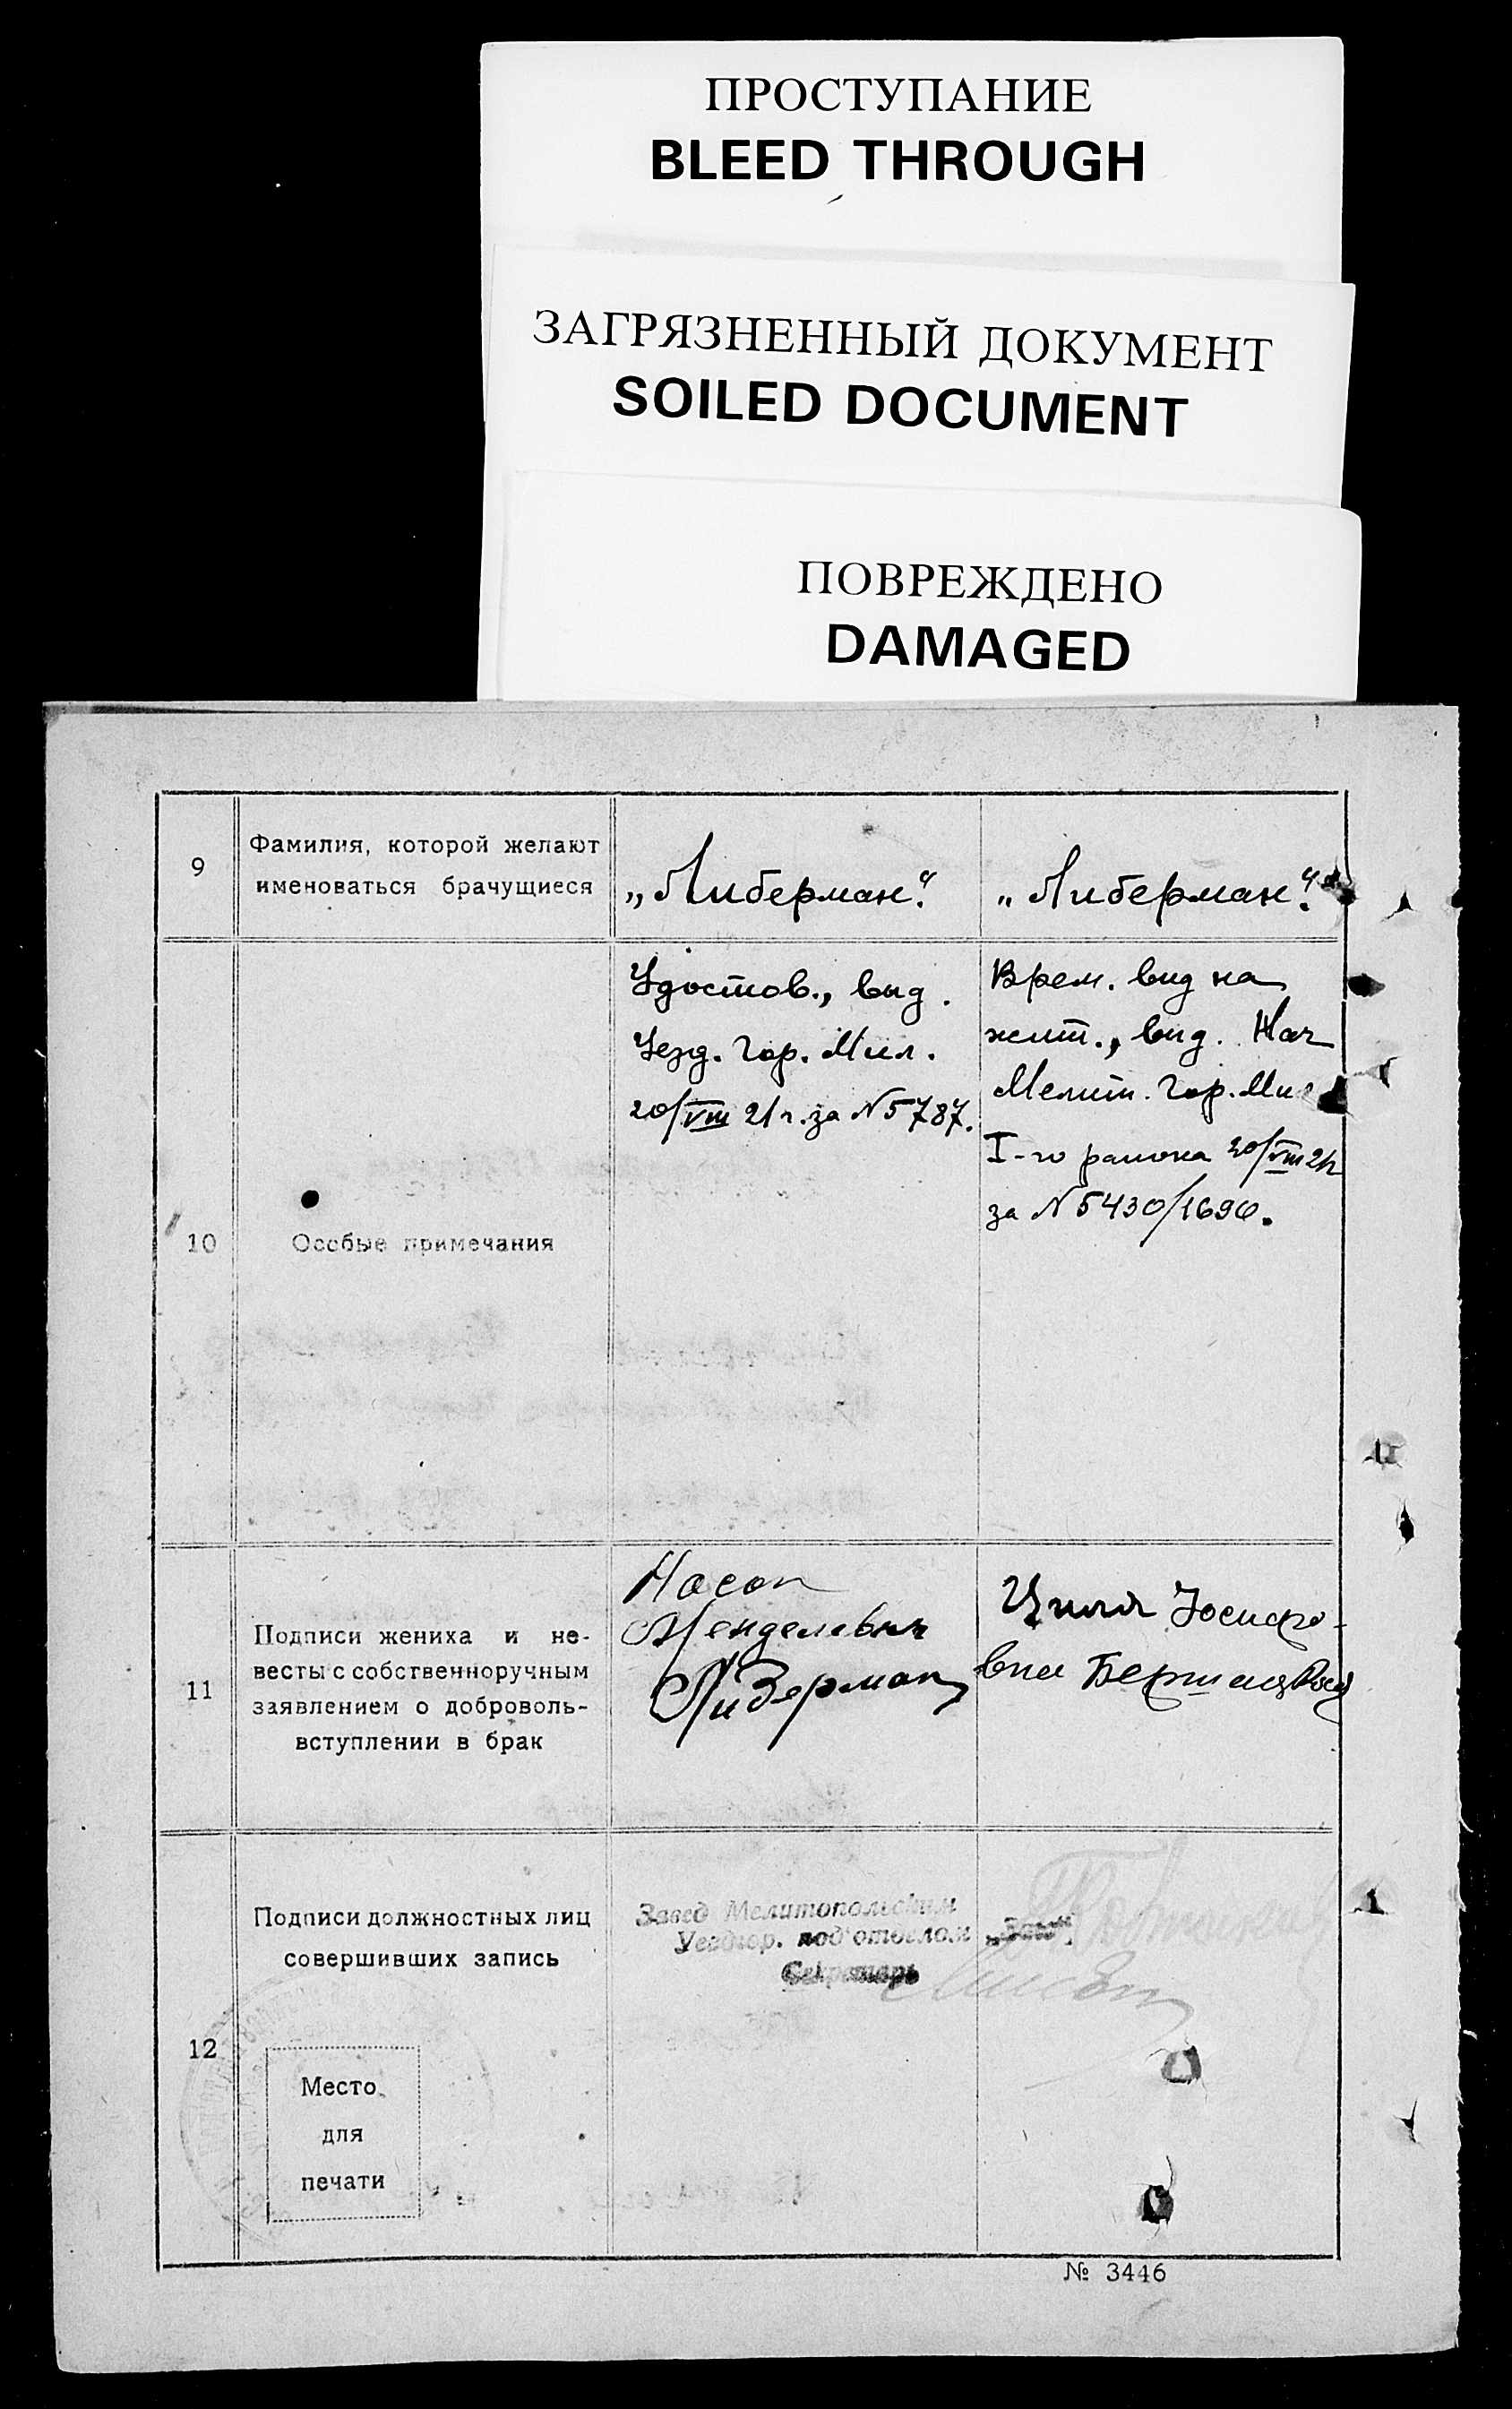 ПРОСТУПАНИЕ
BLEED THROUGH
ЗАГРЯЗНЕННЫЙ ДОКУМЕНТ
SOILED DOCUMENT
ПОВРЕЖДЕНО
DAMAGED
9
Фамилия, которой желают
именоваться брачущиеся
„Либерман“.
„Либерман“.
10
Особые примечания
Удостов., выд.
Уезд. Гор. Мил.
20/VIII 21 г. за № 5787.
Врем. вид на
жит., выд. Нач
Мелит. Гор. Ми
I-го района 20/VIII 21 г
за № 5430/1690.
11
Подписи жениха и не-
весты с собственноручным
заявлением о доброволь-
вступлении в брак
Насон
Менделевич
Либерман
Циля Иосифо-
вна
12
Подписи должностных лиц
совершивших запись
Место
для
печати
Завед Мелитопольским
Уездгор. под'отделом „Загс“
Секретарь
№ 3446